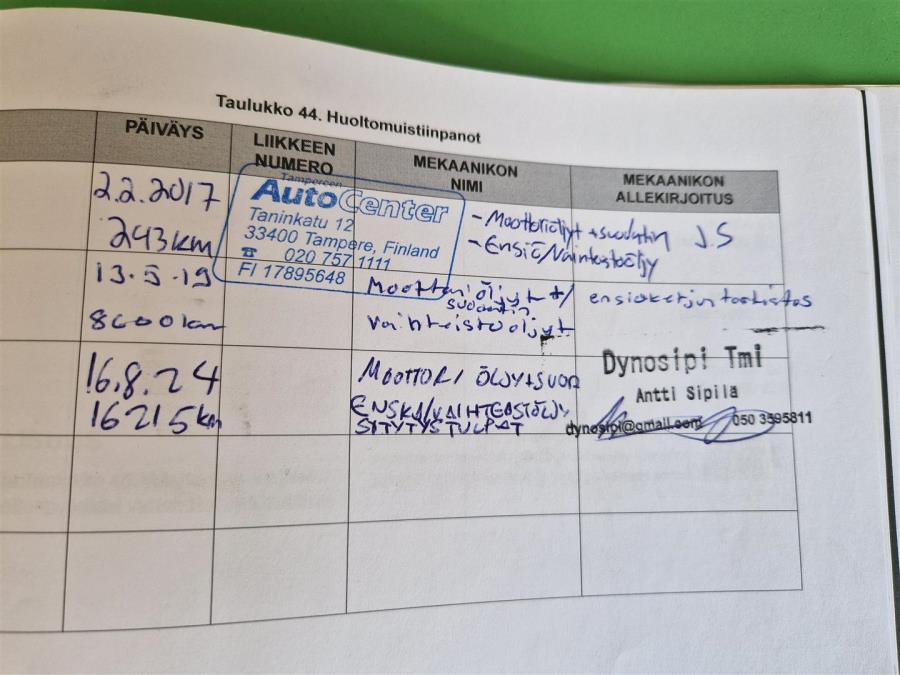 Taulukko 44. Huoltomuistiinpanot
PÄIVÄYS
LIIKKEEN
NUMERO
MEKAANIKON
NIMI
MEKAANIKON
ALLEKIRJOITUS
2.2.2017
243km
Tampereen
AutoCenter
Taninkatu 12
33400 Tampere, Finland
☎ 020 757 1111
FI 17895648
- Moottoriöljyt + suodatin J.S
- Ensiö/Vaihteistoöljy
13.5.19
8600km
Moottoriöljyt +/
suodatin
vaihteistoöljyt
ensiöketjun tarkistus
16.8.24
16215km
MOOTTORI ÖLJY+SUOD
ENSKA/VAIHTEISTÖLJY
SYTYTYSTULPAT
Dynosipi Tmi
Antti Sipilä
dynosipi@gmail.com 050 3595811